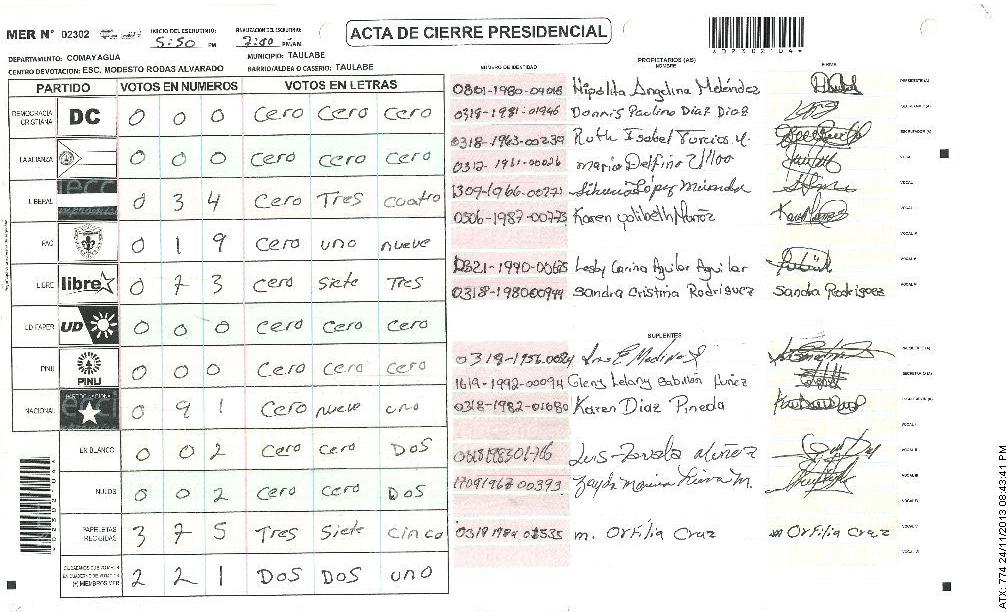 MER N° 02302 INICIO DEL ESCRUTINIO: 5:50 PM FINALIZACION DEL ESCRUTINIO: 7:00 PM/AM ACTA DE CIERRE PRESIDENCIAL
DEPARTAMENTO: COMAYAGUA MUNICIPIO: TAULABE
CENTRO DE VOTACION: ESC. MODESTO RODAS ALVARADO BARRIO/ALDEA O CASERIO: TAULABE
PARTIDO VOTOS EN NUMEROS VOTOS EN LETRAS
DEMOCRACIA CRISTIANA DC 0 0 0 cero cero cero
LA ALIANZA 0 0 0 cero cero cero
LIBERAL 0 3 4 cero Tres cuatro
PAC 0 1 9 cero uno nueve
LIBRE libre 0 7 3 cero siete Tres
UD FAPER UD 0 0 0 cero cero cero
PINU PINU 0 0 0 cero cero cero
NACIONAL 0 9 1 cero nueve uno
EN BLANCO 0 0 2 cero cero Dos
NULOS 0 0 2 cero cero Dos
PAPELETAS RECIBIDAS 3 7 5 Tres siete cinco
2 2 1 Dos Dos uno
PROPIETARIOS (AS)
NUMERO DE IDENTIDAD NOMBRE FIRMA
Hipolita Angelina Meléndez PRESIDENTE (A)
0318-1981-01946 Donnis Paulino Diaz Diaz SECRETARIO (A)
0318-1963-00239 Ruth Isabel Turcios ESCRUTADOR (A)
0312-1961-00026 Maria Delfina Ulloa VOCAL
1307-1966-00271 López Miranda VOCAL
0506-1987-00773 Karen Yolibeth Muñoz VOCAL
Lesby Carina Aguilar Aguilar
0318-198000944 Sandra Cristina Rodriguez Sandra Rodriguez
SUPLENTES
0318-1956-0024
1619-1992-00094 Gleny Lelany Gabillon Nuñez
0318-1982-01680 Karen Diaz Pineda
Luis Zavala Nuñez
1709196700393
m. Orfilia Cruz m Orfilia Cruz
ATX: 774 24/11/2013 08:43:41 PM